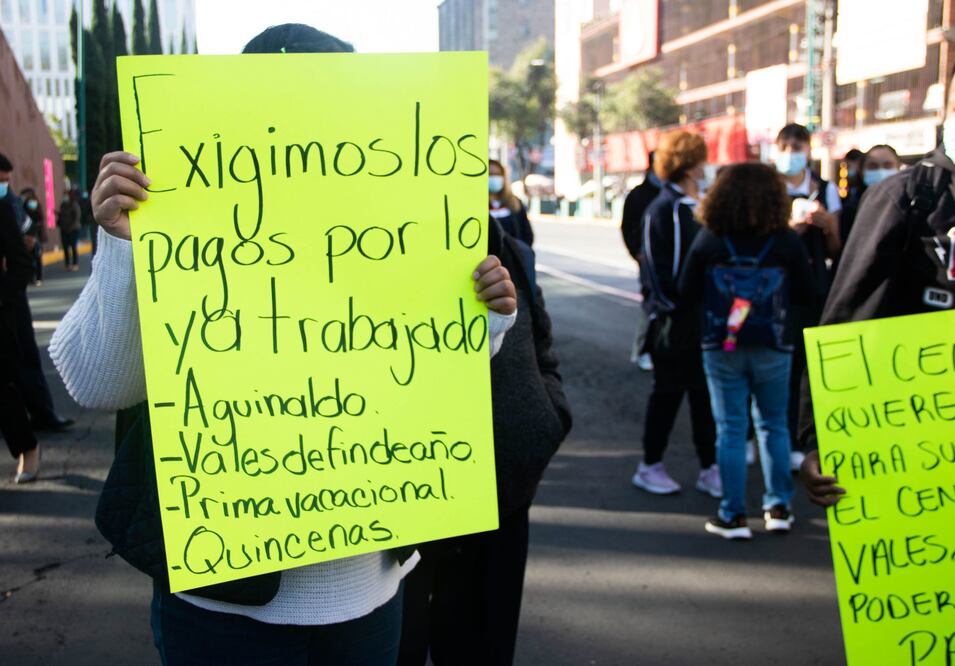 Exigimos los
pagos por lo
ya trabajado
- Aguinaldo.
- Vales de fin de año.
- Prima vacacional.
- Quincenas.
EL
QUIERE
PARA
EL
VALES,